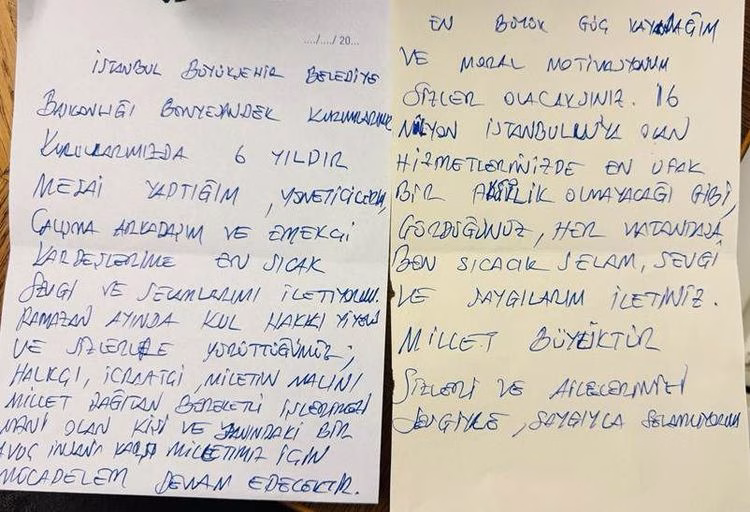 ..../..../ 20...
İSTANBUL BÜYÜKŞEHİR BELEDİYE
BAŞKANLIĞI BÜNYESİNDEK KURUMLARIMIZ
KURULLARIMIZDA 6 YILDIR
MESAİ YAPTIĞIM, YÖNETİCİLERİM,
ÇALIŞMA ARKADAŞIM VE EMEKÇİ
KARDEŞLERİME EN SICAK
SEVGİ VE SELAMLARIMI İLETİYORUM.
RAMAZAN AYINDA KUL HAKKI YİYEN
VE SİZLERLE YÜRÜTTÜĞÜMÜZ;
HALKÇI, İCRAATÇI, MİLLETİN MALINI
MİLLET DAĞITAN BEREKETLİ İŞLERİMİZİ
MANİ OLAN KİŞİ VE YANINDAKİ BİR
AVUÇ İNSANA KARŞI MİLLETİMİZ İÇİN
MÜCADELEM DEVAM EDECEKTİR.
EN BÜYÜK GÜÇ KAYNAĞIM
VE MORAL MOTİVASYONUM
SİZLER OLACAKSINIZ. 16
MİLYON İSTANBULLUYA OLAN
HİZMETLERİNİZDE EN UFAK
BİR OLMAYACAĞI GİBİ,
GÖRDÜĞÜNÜZ, HER VATANDAŞA
BEN SICACIK SELAM, SEVGİ
VE SAYGILARIM İLETİNİZ.
MİLLET BÜYÜKTÜR
SİZLERİ VE AİLELERİNİZİ
SEVGİYLE, SAYGIYLA SELAMLIYORUM